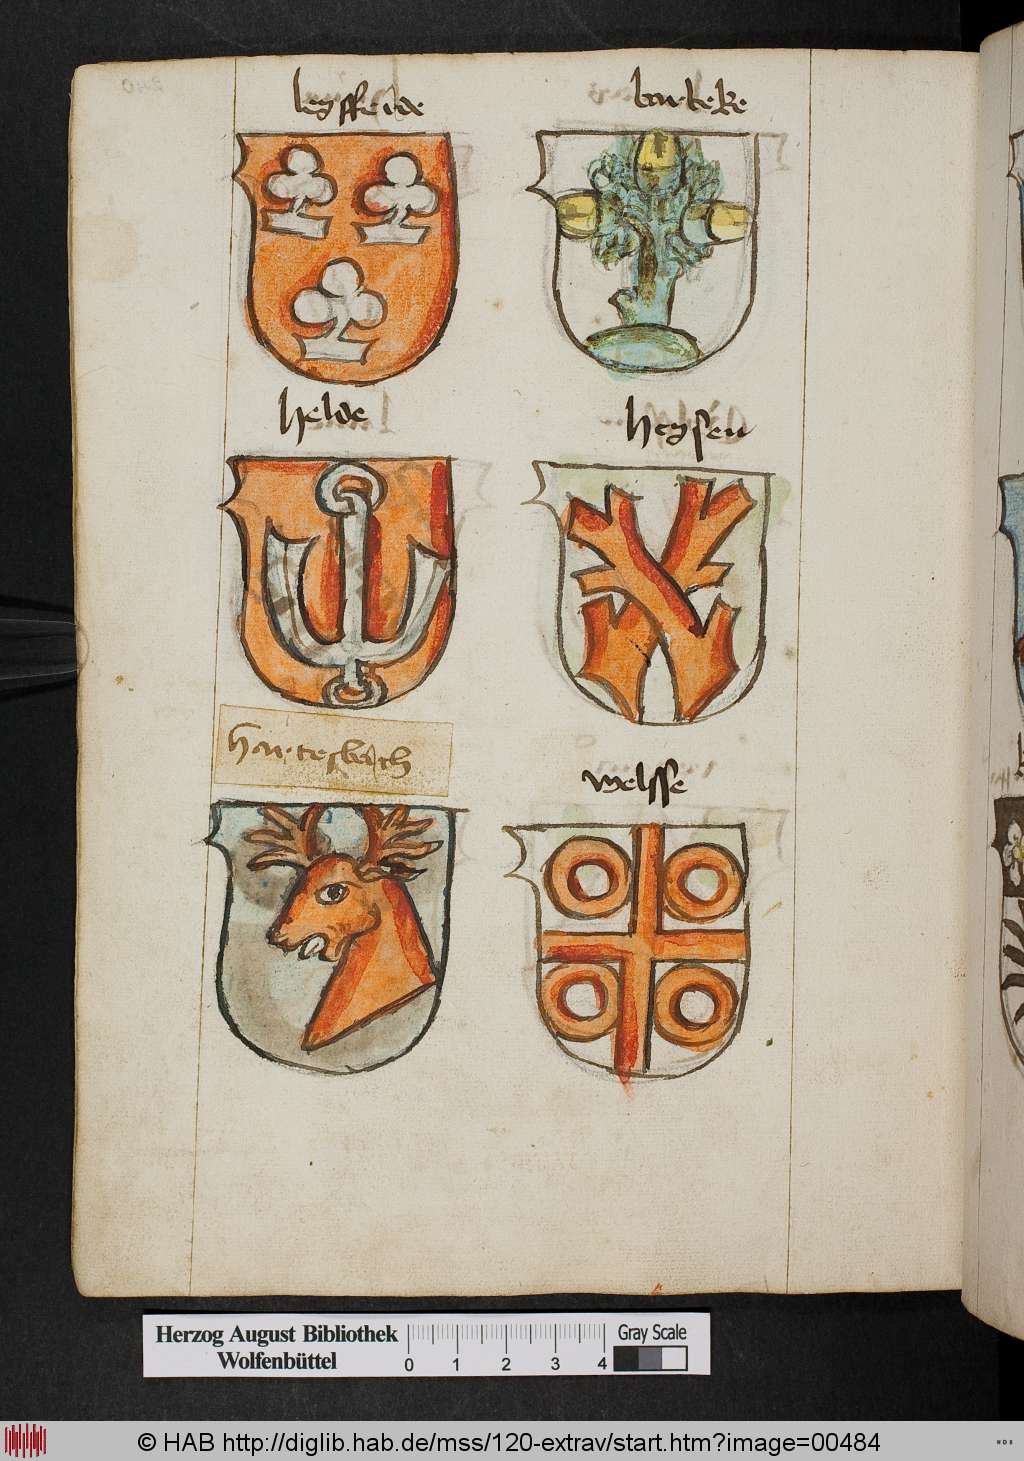 leyffeide
barbeke
helde
heysen
hartesbach
welsse
Herzog August Bibliothek
Wolfenbüttel
0 1 2 3 4
Gray Scale
© HAB http://diglib.hab.de/mss/120-extrav/start.htm?image=00484